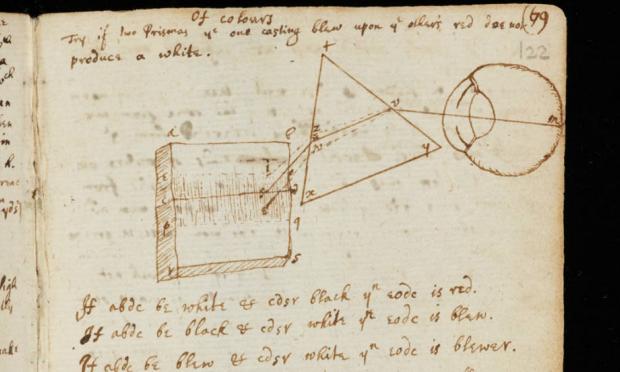 Of colours
(69
122
Try if two Prismas yᵉ one casting blew upon yᵉ others red doe not
produce a white.
If abdc be white & cdsr black yⁿ eodc is red.
If abdc be black & cdsr white yⁿ eodc is blew.
If abdc be blew & cdsr white yⁿ eodc is blewer.